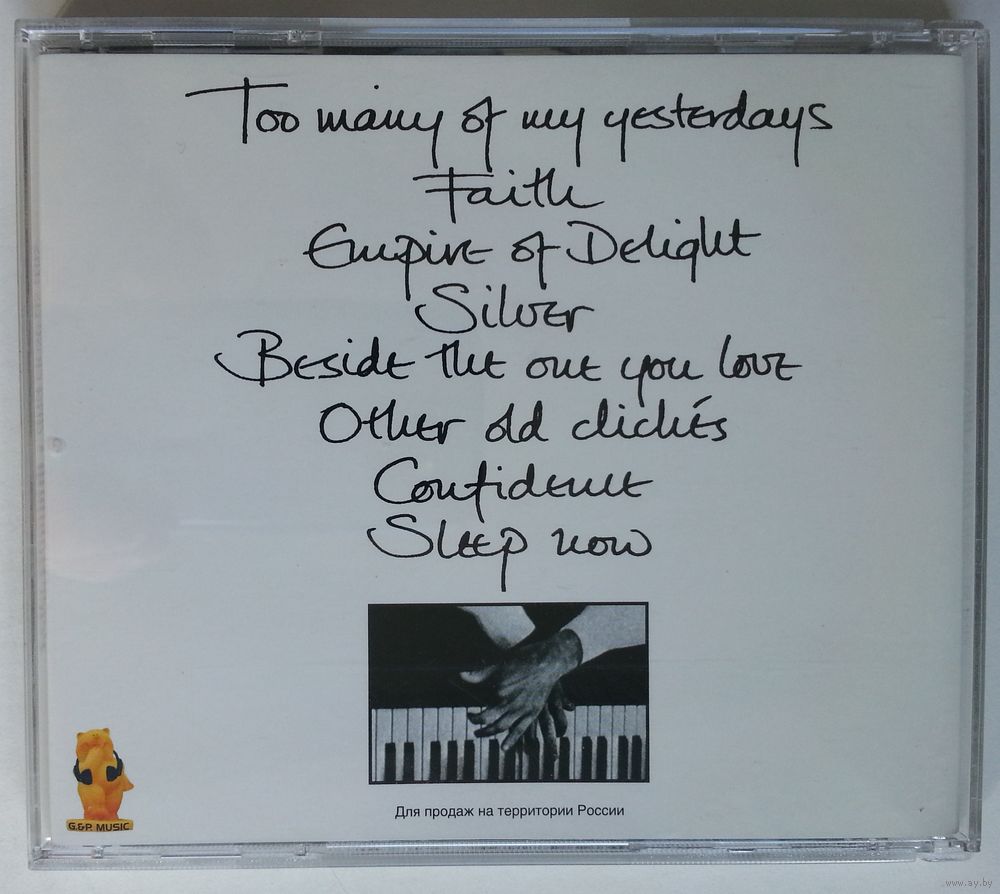 Too many of my yesterdays
Faith
Empire of Delight
Silver
Beside the one you love
Other old clichés
Confidence
Sleep now
G.&P. MUSIC
Для продаж на территории России
www.ay.by